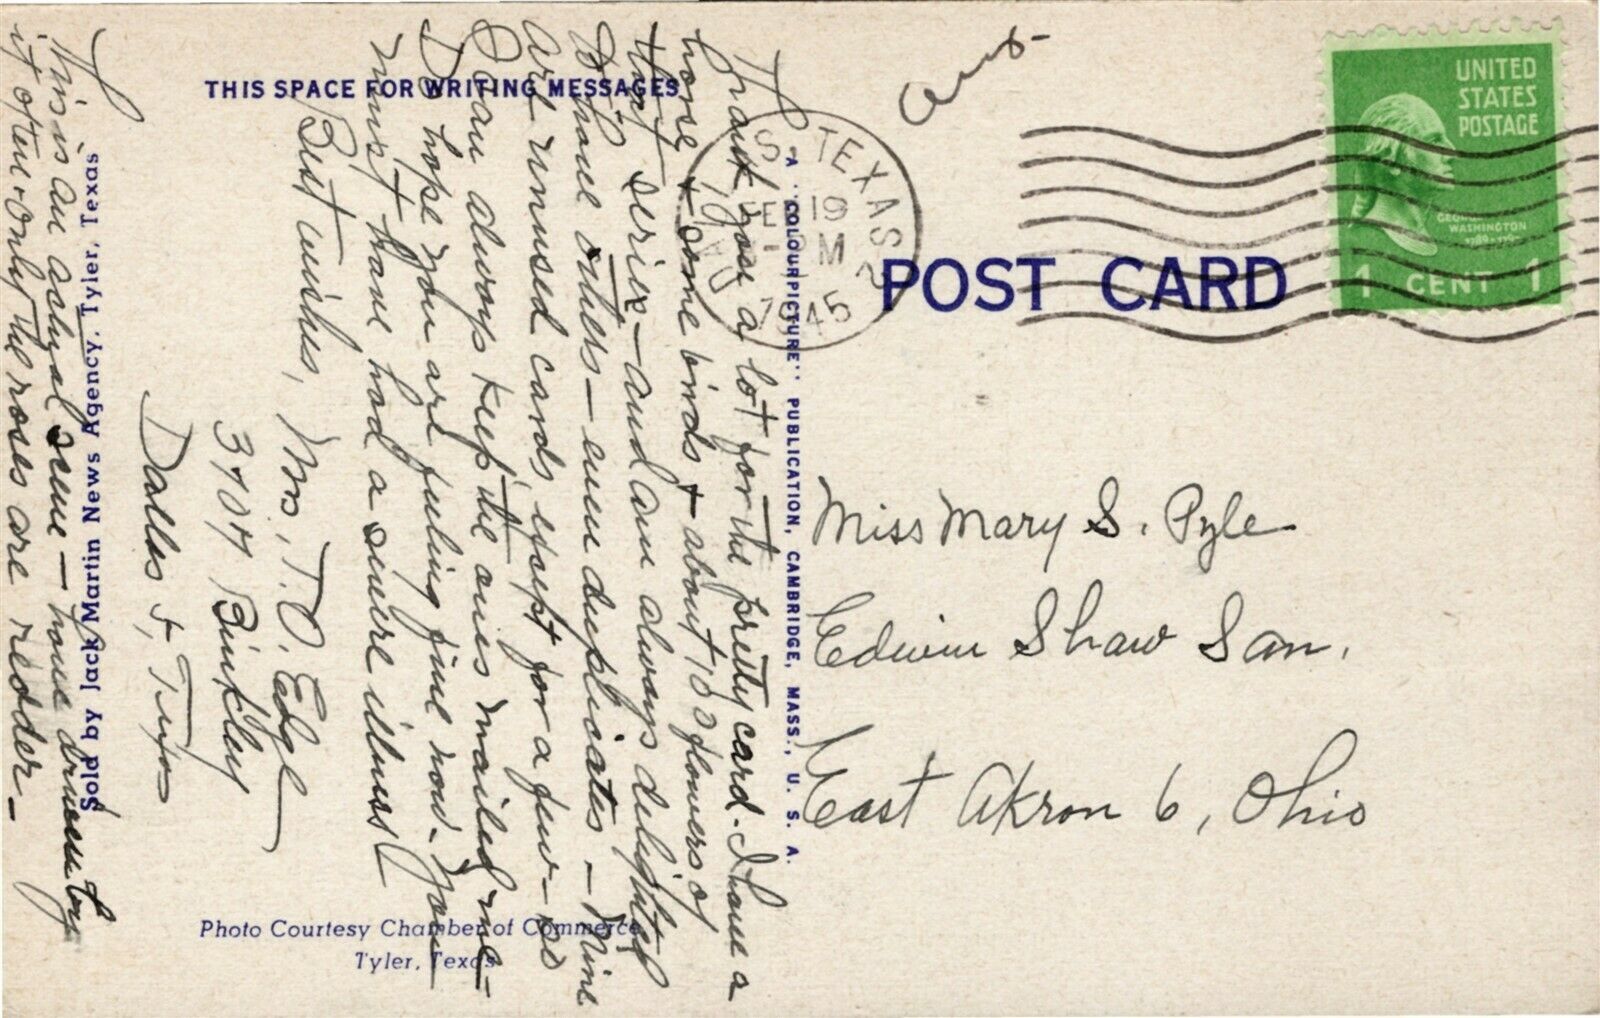 THIS SPACE FOR WRITING MESSAGES
Thank you a lot for the pretty card. I have a
horse + some birds + about 1 or 2 flowers of
that series - and am always delighted
to have others - even duplicates - Mine
are unused cards except for a few - as
I can always keep the ones mailed me -
Do hope you are feeling fine now. You
must have had a severe illness
Best wishes,
Mrs. T. O. Edge
3404 Binkley
Dallas 5, Texas
This is an actual scene - have driven by
it often - only the roses are redder -
Sold by Jack Martin News Agency, Tyler, Texas
Photo Courtesy Chamber of Commerce
Tyler, Texas
A "COLOURPICTURE" PUBLICATION, CAMBRIDGE, MASS., U. S. A.
Ans-
TEXAS
19
PM
1945
UNITED
STATES
POSTAGE
GEORGE
WASHINGTON
1 CENT 1
POST CARD
Miss Mary S. Pyle
Edwin Shaw San.
East Akron 6, Ohio